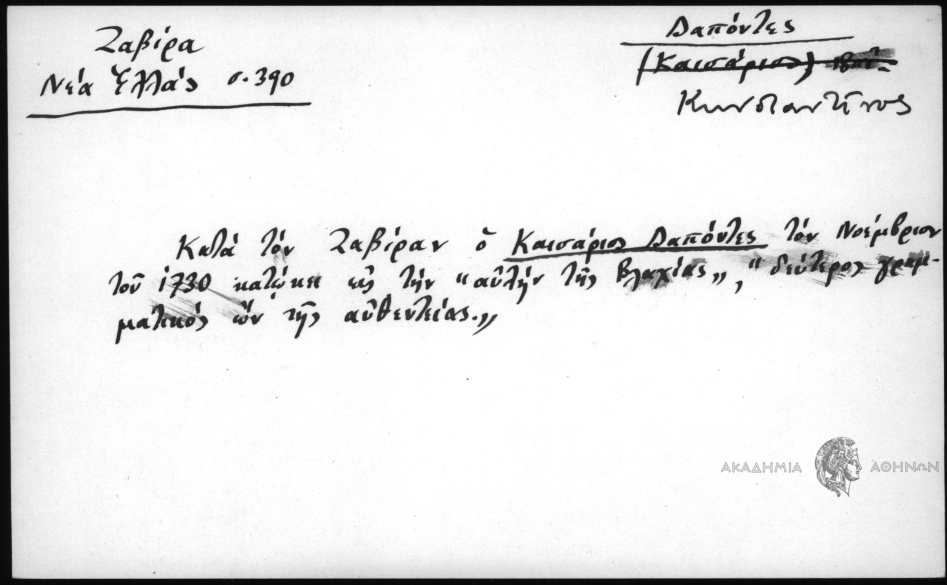 Ζαβίρα
Νέα Ἑλλάς σ. 390
Δαπόντες
(Καισάριος)
Κωνσταντῖνος
Κατά τόν Ζαβίραν ὁ Καισάριος Δαπόντες τόν Νοέμβριον
τοῦ 1730 κατῴκει εἰς τήν "αὐλήν τῆς Βλαχίας„, "δεύτερος γραμ-
ματικός ὤν τῆς αὐθεντείας.„
ΑΚΑΔΗΜΙΑ ΑΘΗΝΩΝ